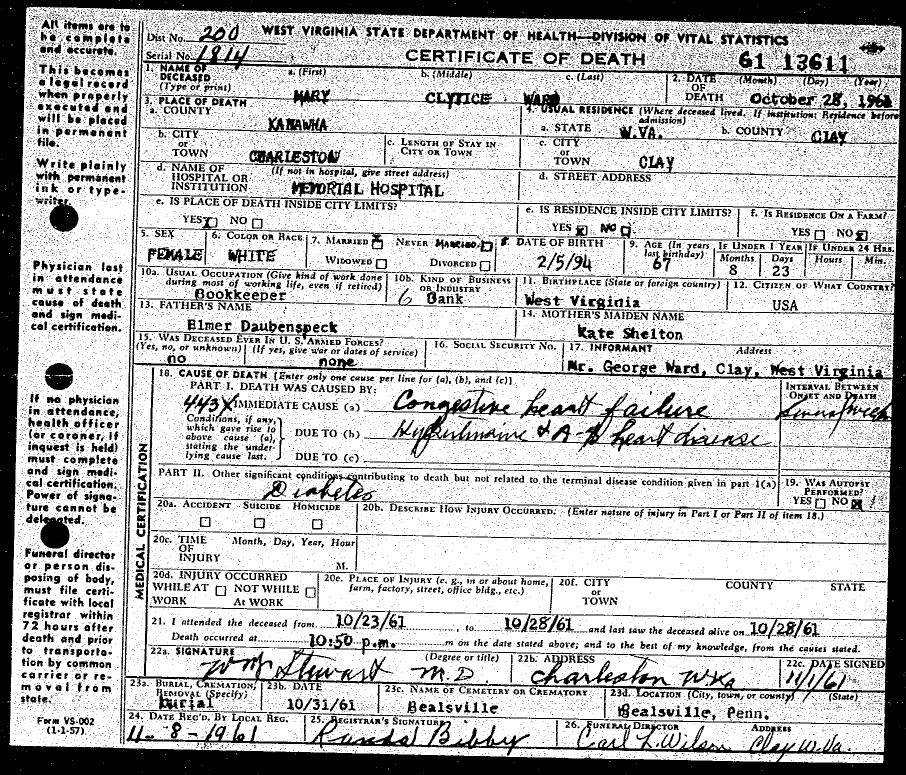 All items are to be complete and accurate.
This becomes a legal record when properly executed and will be placed in permanent file.
Write plainly with permanent ink or type-writer.
Physician last in attendance must state cause of death and sign medi-cal certification.
If no physician in attendance, health officer (or coroner, if inquest is held) must complete and sign medi-cal certification. Power of signa-ture cannot be delegated.
Funeral director or person dis-posing of body, must file certi-ficate with local registrar within 72 hours after death and prior to transporta-tion by common carrier or re-moval from state.
Form VS-002
(1-1-57)
Dist No. 200 WEST VIRGINIA STATE DEPARTMENT OF HEALTH—DIVISION OF VITAL STATISTICS
Serial No. 1814 CERTIFICATE OF DEATH 61 13611
1. NAME OF DECEASED (Type or print) a. (First) b. (Middle) c. (Last) 2. DATE OF DEATH (Month) (Day) (Year)
MARY CLYTICE WARD October 28, 1961
3. PLACE OF DEATH 4. USUAL RESIDENCE (Where deceased lived. If institution: Residence before admission)
a. COUNTY KANAWHA a. STATE W.VA. b. COUNTY CLAY
b. CITY or TOWN CHARLESTON c. LENGTH OF STAY IN CITY OR TOWN c. CITY or TOWN CLAY
d. NAME OF HOSPITAL OR INSTITUTION (If not in hospital, give street address) MEMORIAL HOSPITAL d. STREET ADDRESS
e. IS PLACE OF DEATH INSIDE CITY LIMITS? e. IS RESIDENCE INSIDE CITY LIMITS? f. IS RESIDENCE ON A FARM?
YES X NO YES X NO YES NO X
5. SEX 6. COLOR OR RACE 7. MARRIED X NEVER MARRIED 8. DATE OF BIRTH 9. AGE (In years last birthday) IF UNDER 1 YEAR IF UNDER 24 HRS.
FEMALE WHITE WIDOWED DIVORCED 2/5/94 67 Months 8 Days 23 Hours Min.
10a. USUAL OCCUPATION (Give kind of work done during most of working life, even if retired) 10b. KIND OF BUSINESS OR INDUSTRY 11. BIRTHPLACE (State or foreign country) 12. CITIZEN OF WHAT COUNTRY?
Bookkeeper 6 Bank West Virginia USA
13. FATHER'S NAME 14. MOTHER'S MAIDEN NAME
Elmer Daubenspeck Kate Shelton
15. WAS DECEASED EVER IN U. S. ARMED FORCES? 16. SOCIAL SECURITY NO. 17. INFORMANT Address
(Yes, no, or unknown) (If yes, give war or dates of service)
no none Mr. George Ward, Clay, West Virginia
MEDICAL CERTIFICATION
18. CAUSE OF DEATH (Enter only one cause per line for (a), (b), and (c)) INTERVAL BETWEEN ONSET AND DEATH
PART I. DEATH WAS CAUSED BY:
443X IMMEDIATE CAUSE (a) Congestive heart failure
Conditions, if any, which gave rise to above cause (a), stating the under-lying cause last. DUE TO (b) & A-S heart disease
DUE TO (c)
PART II. Other significant conditions contributing to death but not related to the terminal disease condition given in part 1(a) 19. WAS AUTOPSY PERFORMED?
Diabetes YES NO X
20a. ACCIDENT SUICIDE HOMICIDE 20b. DESCRIBE HOW INJURY OCCURRED. (Enter nature of injury in Part I or Part II of item 18.)
20c. TIME OF INJURY Month, Day, Year, Hour M.
20d. INJURY OCCURRED 20e. PLACE OF INJURY (e. g., in or about home, farm, factory, street, office bldg., etc.) 20f. CITY or TOWN COUNTY STATE
WHILE AT WORK NOT WHILE AT WORK
21. I attended the deceased from 10/23/61, to 10/28/61 and last saw the deceased alive on 10/28/61
Death occurred at 10:50 p.m. m on the date stated above; and to the best of my knowledge, from the causes stated.
22a. SIGNATURE (Degree or title) 22b. ADDRESS 22c. DATE SIGNED
Wm Stewart M.D. Charleston W Va 11/1/61
23a. BURIAL, CREMATION, REMOVAL (Specify) 23b. DATE 23c. NAME OF CEMETERY OR CREMATORY 23d. LOCATION (City, town, or county) (State)
Burial 10/31/61 Bealsville Bealsville, Penn.
24. DATE REC'D. BY LOCAL REG. 25. REGISTRAR'S SIGNATURE 26. FUNERAL DIRECTOR ADDRESS
11-8-1961 Randa Bibby Carl L. Wilson Clay W. Va.